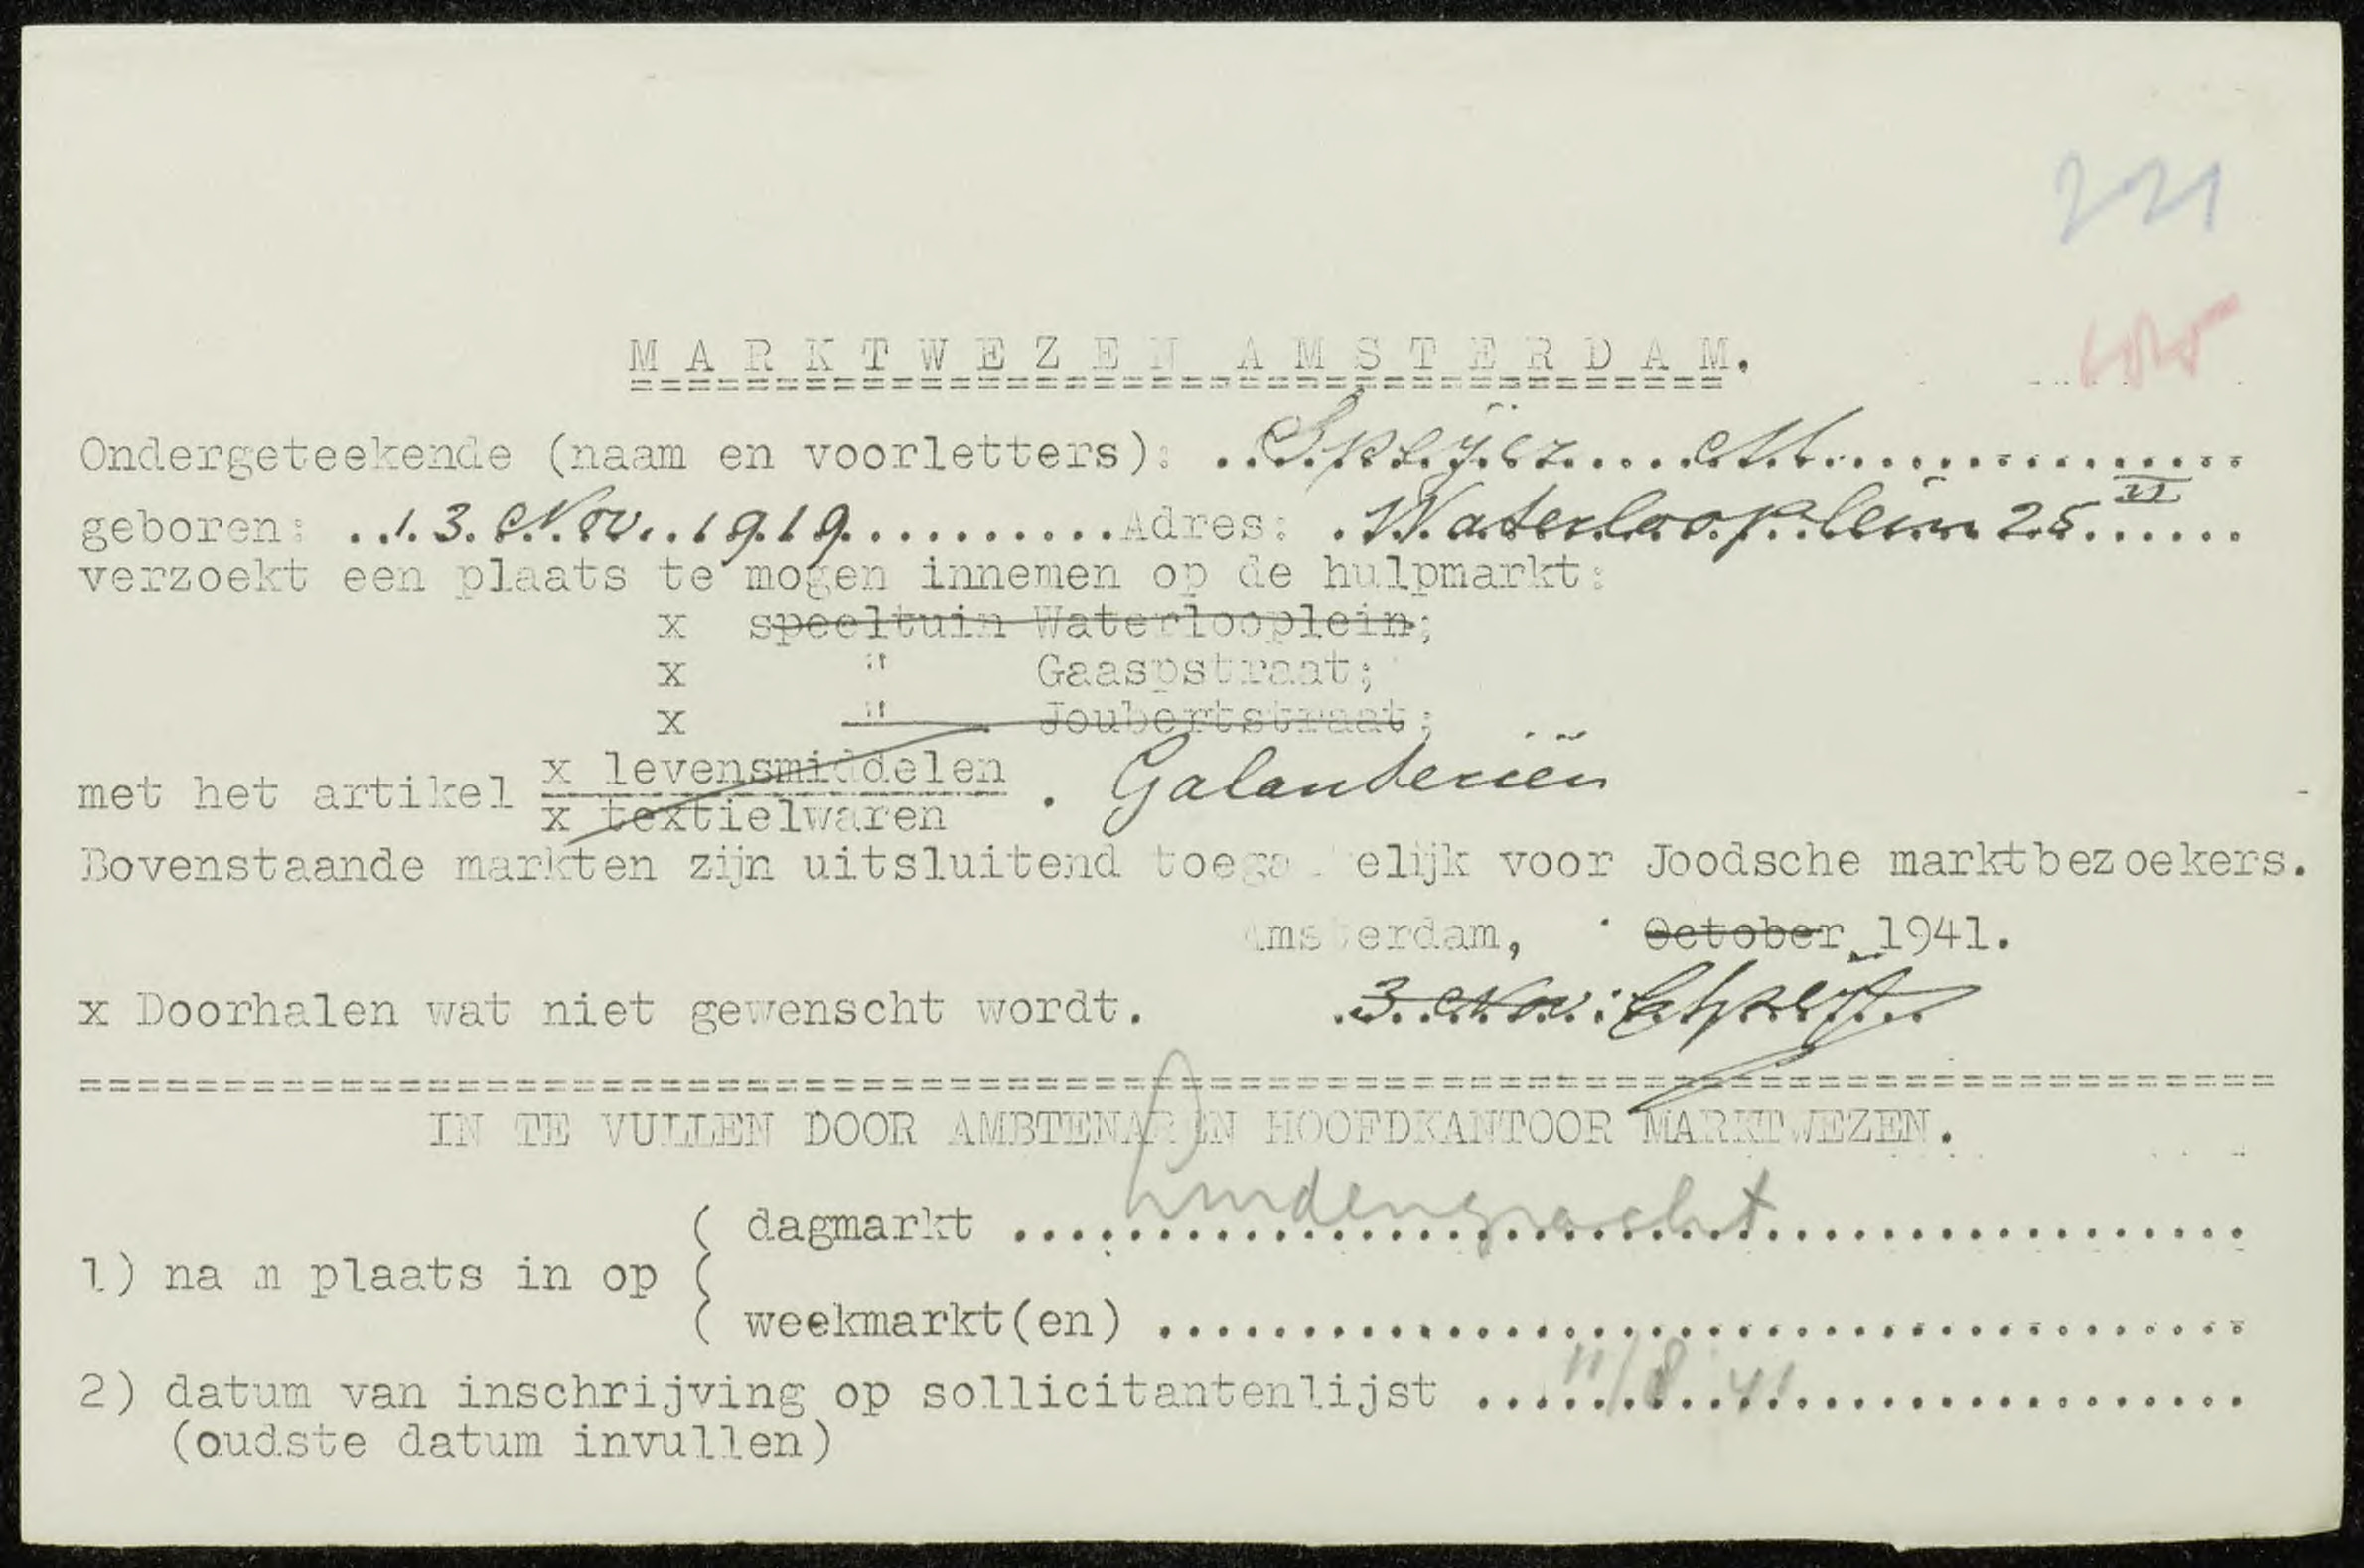 221
MARKTWEZEN AMSTERDAM.
Ondergeteekende (naam en voorletters): Speijer M.
geboren: 13 Nov. 1919 Adres: Waterlooplein 25 II
verzoekt een plaats te mogen innemen op de hulpmarkt:
x speeltuin Waterlooplein;
x " Gaaspstraat;
x " Joubertstraat;
met het artikel x levensmiddelen
x textielwaren . Galanteriën
Bovenstaande markten zijn uitsluitend toegankelijk voor Joodsche marktbezoekers.
Amsterdam, October 1941.
x Doorhalen wat niet gewenscht wordt. 3 Nov:
IN TE VULLEN DOOR AMBTENAREN HOOFDKANTOOR MARKTWEZEN.
( dagmarkt Lindengracht
1) nam plaats in op (
( weekmarkt(en)
2) datum van inschrijving op sollicitantenlijst 11/8 41
(oudste datum invullen)